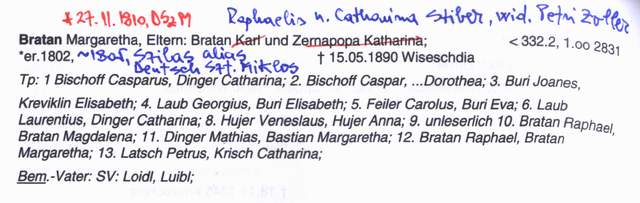 * 27. 11. 1810, DSzM Raphaelis u. Catharina Stiber, wid. Petri Zoller
Bratan Margaretha, Eltern: Bratan Karl und Zernapopa Katharina; < 332.2, 1.oo 2831
*er.1802, ~1805, Szilas alias † 15.05.1890 Wiseschdia
Deutsch Szt. Miklos
Tp: 1 Bischoff Casparus, Dinger Catharina; 2. Bischoff Caspar, ...Dorothea; 3. Buri Joanes,
Kreviklin Elisabeth; 4. Laub Georgius, Buri Elisabeth; 5. Feiler Carolus, Buri Eva; 6. Laub
Laurentius, Dinger Catharina; 8. Hujer Veneslaus, Hujer Anna; 9. unleserlich 10. Bratan Raphael,
Bratan Magdalena; 11. Dinger Mathias, Bastian Margaretha; 12. Bratan Raphael, Bratan
Margaretha; 13. Latsch Petrus, Krisch Catharina;
Bem.-Vater: SV: Loidl, Luibl;